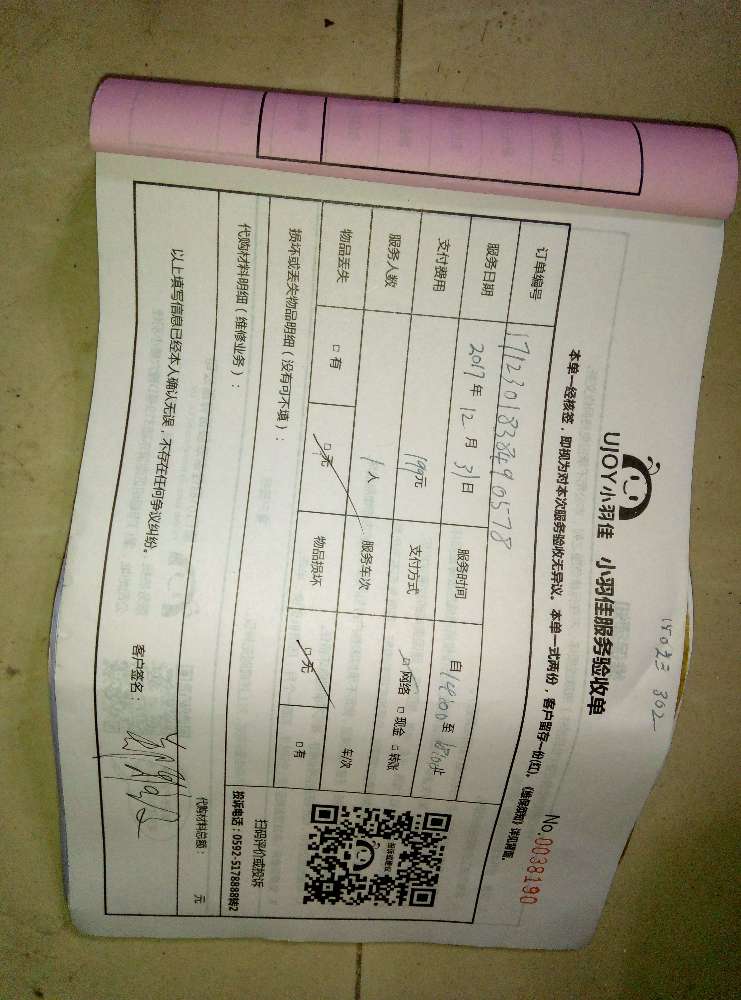 UJOY小羽佳 小羽佳服务验收单
No.0038190
本单一经核签，即视为对本次服务验收无异议。本单一式两份，客户留存一份(红)。
订单编号 171230183384910578
服务日期 2017年 12月 31日 服务时间 自 至
支付费用 199元 支付方式 □网络 □现金 □转账
服务人数 1人 服务车次 车/次
物品丢失 □有 □无 物品损坏 □无 □有
扫码评价或投诉
投诉电话：0592-5178888转2
损坏或丢失物品明细（没有可不填）：
代购材料明细（维修业务）：
代购材料总额： 元
以上填写信息已经本人确认无误，不存在任何争议纠纷。
客户签名：